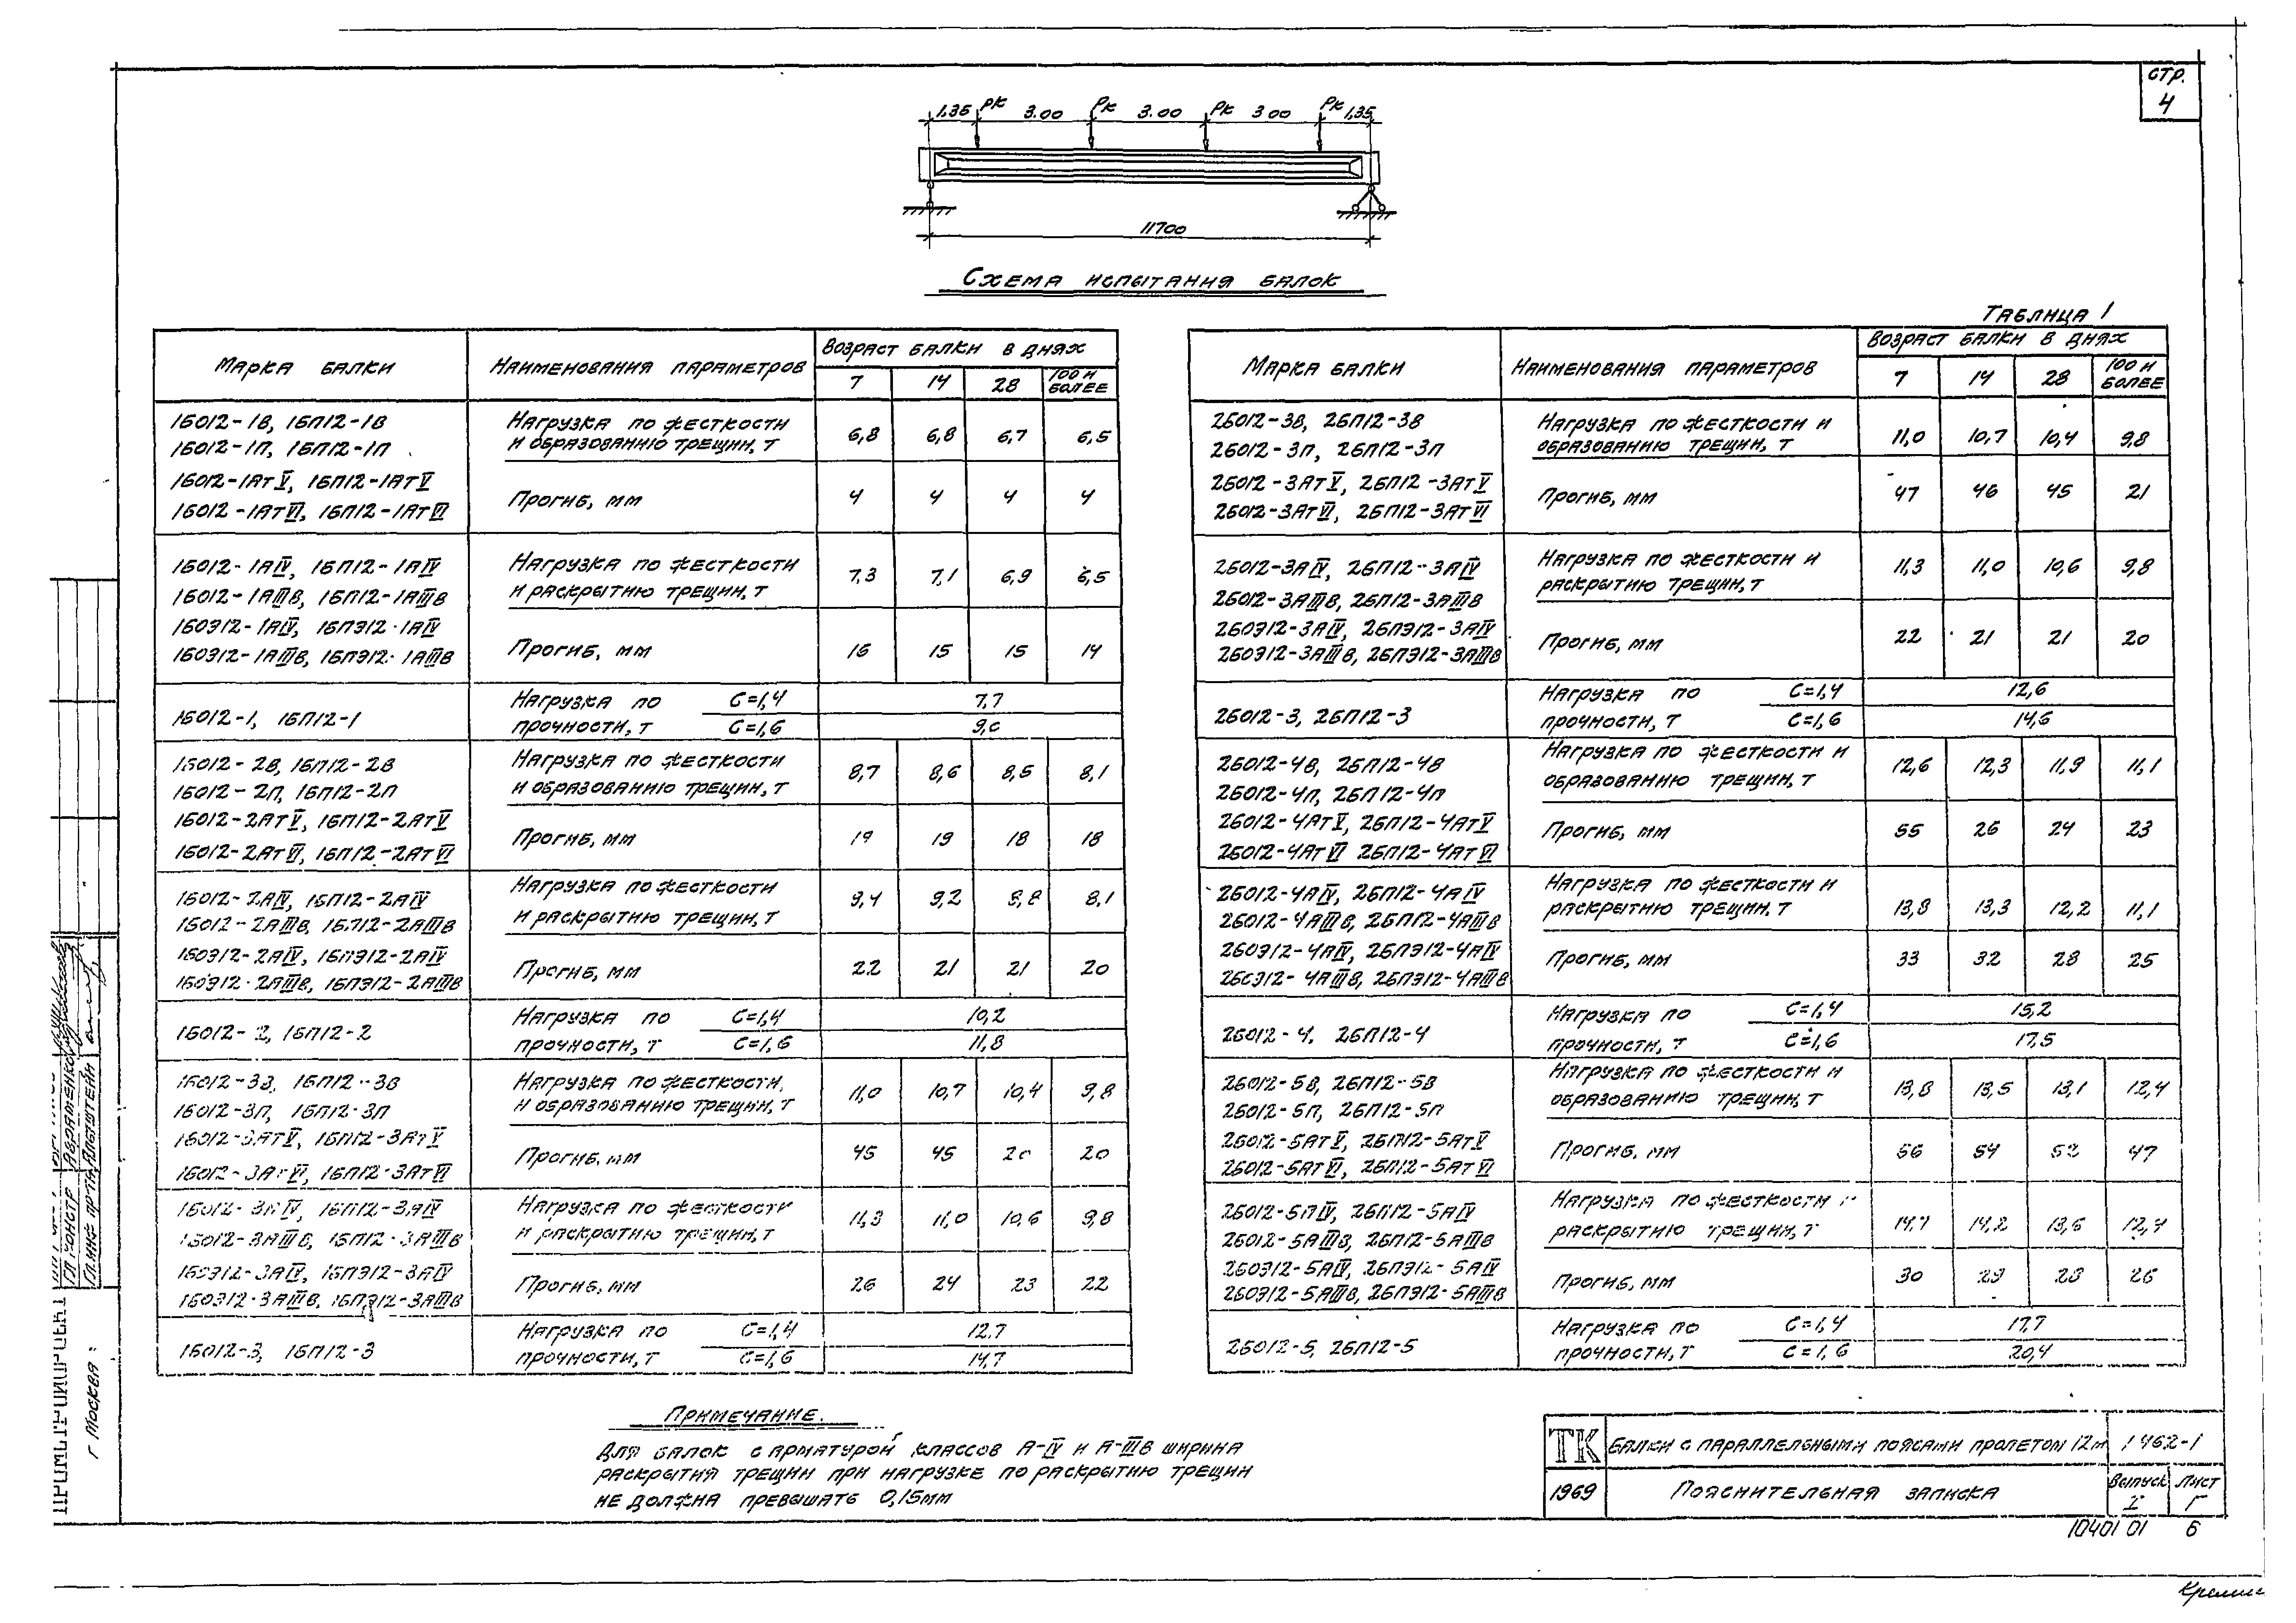 СТР.
4
1,35 РК 3.00 РК 3.00 РК 3 00 РК 1,35
11700
СХЕМА ИСПЫТАНИЯ БАЛОК
ТАБЛИЦА 1
МАРКА БАЛКИ
НАИМЕНОВАНИЯ ПАРАМЕТРОВ
ВОЗРАСТ БАЛКИ В ДНЯХ
7 14 28 100 И БОЛЕЕ
1БО12-1В, 1БП12-1В
1БО12-1П, 1БП12-1П
1БО12-1АтV, 1БП12-1АтV
1БО12-1АтVI, 1БП12-1АтVI
НАГРУЗКА ПО ЖЕСТКОСТИ
И ОБРАЗОВАНИЮ ТРЕЩИН, Т
6,8 6,8 6,7 6,5
ПРОГИБ, ММ
4 4 4 4
1БО12-1АIV, 1БП12-1АIV
1БО12-1АIIIВ, 1БП12-1АIIIВ
1БОЭ12-1АIV, 1БПЭ12-1АIV
1БОЭ12-1АIIIВ, 1БПЭ12-1АIIIВ
НАГРУЗКА ПО ЖЕСТКОСТИ
И РАСКРЫТИЮ ТРЕЩИН, Т
7,3 7,1 6,9 6,5
ПРОГИБ, ММ
16 15 15 14
1БО12-1, 1БП12-1
НАГРУЗКА ПО С=1,4 7,7
ПРОЧНОСТИ, Т С=1,6 9,0
1БО12-2В, 1БП12-2В
1БО12-2П, 1БП12-2П
1БО12-2АтV, 1БП12-2АтV
1БО12-2АтVI, 1БП12-2АтVI
НАГРУЗКА ПО ЖЕСТКОСТИ
И ОБРАЗОВАНИЮ ТРЕЩИН, Т
8,7 8,6 8,5 8,1
ПРОГИБ, ММ
19 19 18 18
1БО12-2АIV, 1БП12-2АIV
1БО12-2АIIIВ, 1БП12-2АIIIВ
1БОЭ12-2АIV, 1БПЭ12-2АIV
1БОЭ12-2АIIIВ, 1БПЭ12-2АIIIВ
НАГРУЗКА ПО ЖЕСТКОСТИ
И РАСКРЫТИЮ ТРЕЩИН, Т
9,4 9,2 8,8 8,1
ПРОГИБ, ММ
22 21 21 20
1БО12-2, 1БП12-2
НАГРУЗКА ПО С=1,4 10,2
ПРОЧНОСТИ, Т С=1,6 11,8
1БО12-3В, 1БП12-3В
1БО12-3П, 1БП12-3П
1БО12-3АтV, 1БП12-3АтV
1БО12-3АтVI, 1БП12-3АтVI
НАГРУЗКА ПО ЖЕСТКОСТИ
И ОБРАЗОВАНИЮ ТРЕЩИН, Т
11,0 10,7 10,4 9,8
ПРОГИБ, ММ
45 45 20 20
1БО12-3АIV, 1БП12-3АIV
1БО12-3АIIIВ, 1БП12-3АIIIВ
1БОЭ12-3АIV, 1БПЭ12-3АIV
1БОЭ12-3АIIIВ, 1БПЭ12-3АIIIВ
НАГРУЗКА ПО ЖЕСТКОСТИ
И РАСКРЫТИЮ ТРЕЩИН, Т
11,3 11,0 10,6 9,8
ПРОГИБ, ММ
26 24 23 22
1БО12-3, 1БП12-3
НАГРУЗКА ПО С=1,4 12,7
ПРОЧНОСТИ, Т С=1,6 14,7
МАРКА БАЛКИ
НАИМЕНОВАНИЯ ПАРАМЕТРОВ
ВОЗРАСТ БАЛКИ В ДНЯХ
7 14 28 100 И БОЛЕЕ
2БО12-3В, 2БП12-3В
2БО12-3П, 2БП12-3П
2БО12-3АтV, 2БП12-3АтV
2БО12-3АтVI, 2БП12-3АтVI
НАГРУЗКА ПО ЖЕСТКОСТИ И
ОБРАЗОВАНИЮ ТРЕЩИН, Т
11,0 10,7 10,4 9,8
ПРОГИБ, ММ
47 46 45 21
2БО12-3АIV, 2БП12-3АIV
2БО12-3АIIIВ, 2БП12-3АIIIВ
2БОЭ12-3АIV, 2БПЭ12-3АIV
2БОЭ12-3АIIIВ, 2БПЭ12-3АIIIВ
НАГРУЗКА ПО ЖЕСТКОСТИ И
РАСКРЫТИЮ ТРЕЩИН, Т
11,3 11,0 10,6 9,8
ПРОГИБ, ММ
22 21 21 20
2БО12-3, 2БП12-3
НАГРУЗКА ПО С=1,4 12,6
ПРОЧНОСТИ, Т С=1,6 14,6
2БО12-4В, 2БП12-4В
2БО12-4П, 2БП12-4П
2БО12-4АтV, 2БП12-4АтV
2БО12-4АтVI 2БП12-4АтVI
НАГРУЗКА ПО ЖЕСТКОСТИ И
ОБРАЗОВАНИЮ ТРЕЩИН, Т
12,6 12,3 11,9 11,1
ПРОГИБ, ММ
55 26 24 23
2БО12-4АIV, 2БП12-4АIV
2БО12-4АIIIВ, 2БП12-4АIIIВ
2БОЭ12-4АIV, 2БПЭ12-4АIV
2БОЭ12-4АIIIВ, 2БПЭ12-4АIIIВ
НАГРУЗКА ПО ЖЕСТКОСТИ И
РАСКРЫТИЮ ТРЕЩИН, Т
13,8 13,3 12,2 11,1
ПРОГИБ, ММ
33 32 28 25
2БО12-4, 2БП12-4
НАГРУЗКА ПО С=1,4 15,2
ПРОЧНОСТИ, Т С=1,6 17,5
2БО12-5В, 2БП12-5В
2БО12-5П, 2БП12-5П
2БО12-5АтV, 2БП12-5АтV
2БО12-5АтVI, 2БП12-5АтVI
НАГРУЗКА ПО ЖЕСТКОСТИ И
ОБРАЗОВАНИЮ ТРЕЩИН, Т
13,8 13,5 13,1 12,4
ПРОГИБ, ММ
56 54 52 47
2БО12-5АIV, 2БП12-5АIV
2БО12-5АIIIВ, 2БП12-5АIIIВ
2БОЭ12-5АIV, 2БПЭ12-5АIV
2БОЭ12-5АIIIВ, 2БПЭ12-5АIIIВ
НАГРУЗКА ПО ЖЕСТКОСТИ И
РАСКРЫТИЮ ТРЕЩИН, Т
14,2 13,6 12,4
ПРОГИБ, ММ
30 29 28 26
2БО12-5, 2БП12-5
НАГРУЗКА ПО С=1,4 17,7
ПРОЧНОСТИ, Т С=1,6 20,4
ПРИМЕЧАНИЕ.
ДЛЯ БАЛОК С АРМАТУРОЙ КЛАССОВ А-IV И А-IIIВ ШИРИНА
РАСКРЫТИЯ ТРЕЩИН ПРИ НАГРУЗКЕ ПО РАСКРЫТИЮ ТРЕЩИН
НЕ ДОЛЖНА ПРЕВЫШАТЬ 0,15ММ
ТК
БАЛКИ С ПАРАЛЛЕЛЬНЫМИ ПОЯСАМИ ПРОЛЕТОМ 12М
1 462-1
1969
ПОЯСНИТЕЛЬНАЯ ЗАПИСКА
ВЫПУСК I
ЛИСТ Г
10401 01 6
Г МОСКВА
ГЛ КОНСТР АВРАМЕНКО
ГЛ.ИНЖ ПР-ТА АЛЬШТЕЙН